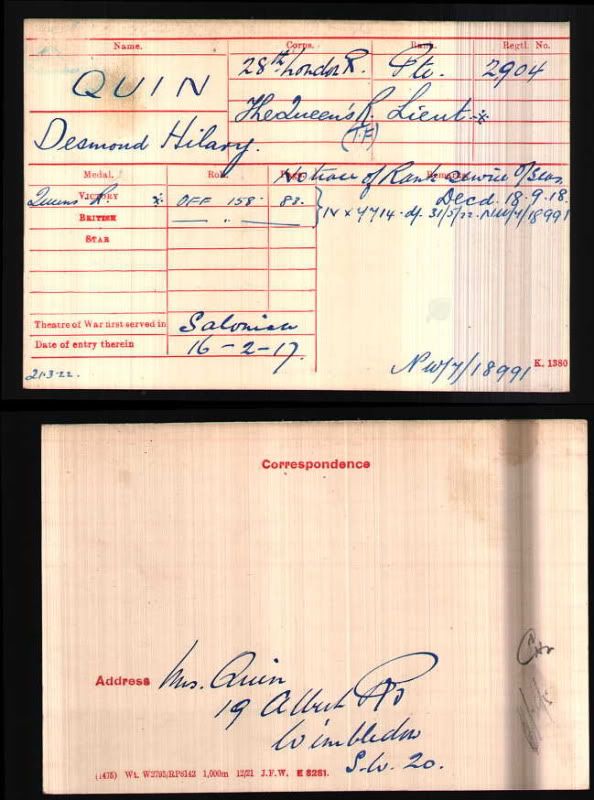 Name. Corps. Rank. Regtl. No.
QUIN 28th London R. Pte. 2904
Desmond Hilary. The Queen's R. Lieut *
(TF)
Medal. Roll. Page. Remarks.
Notion of Rank Service O/Seas.
Queens R. VICTORY * OFF 158. 83. Decd. 18.9.18.
BRITISH — " — IV x 4714. d/. 31/5/22. NW/7/18991
STAR
Theatre of War first served in Salonica
Date of entry therein 16-2-17.
21.3.22. NW/7/18991 K. 1380
Correspondence
Address Mrs. Quin
19 Albert
Wimbledon
S.W. 20.
(1475) Wt. W2795/RP6142 1,000m 12/21 J.F.W. E 8281.